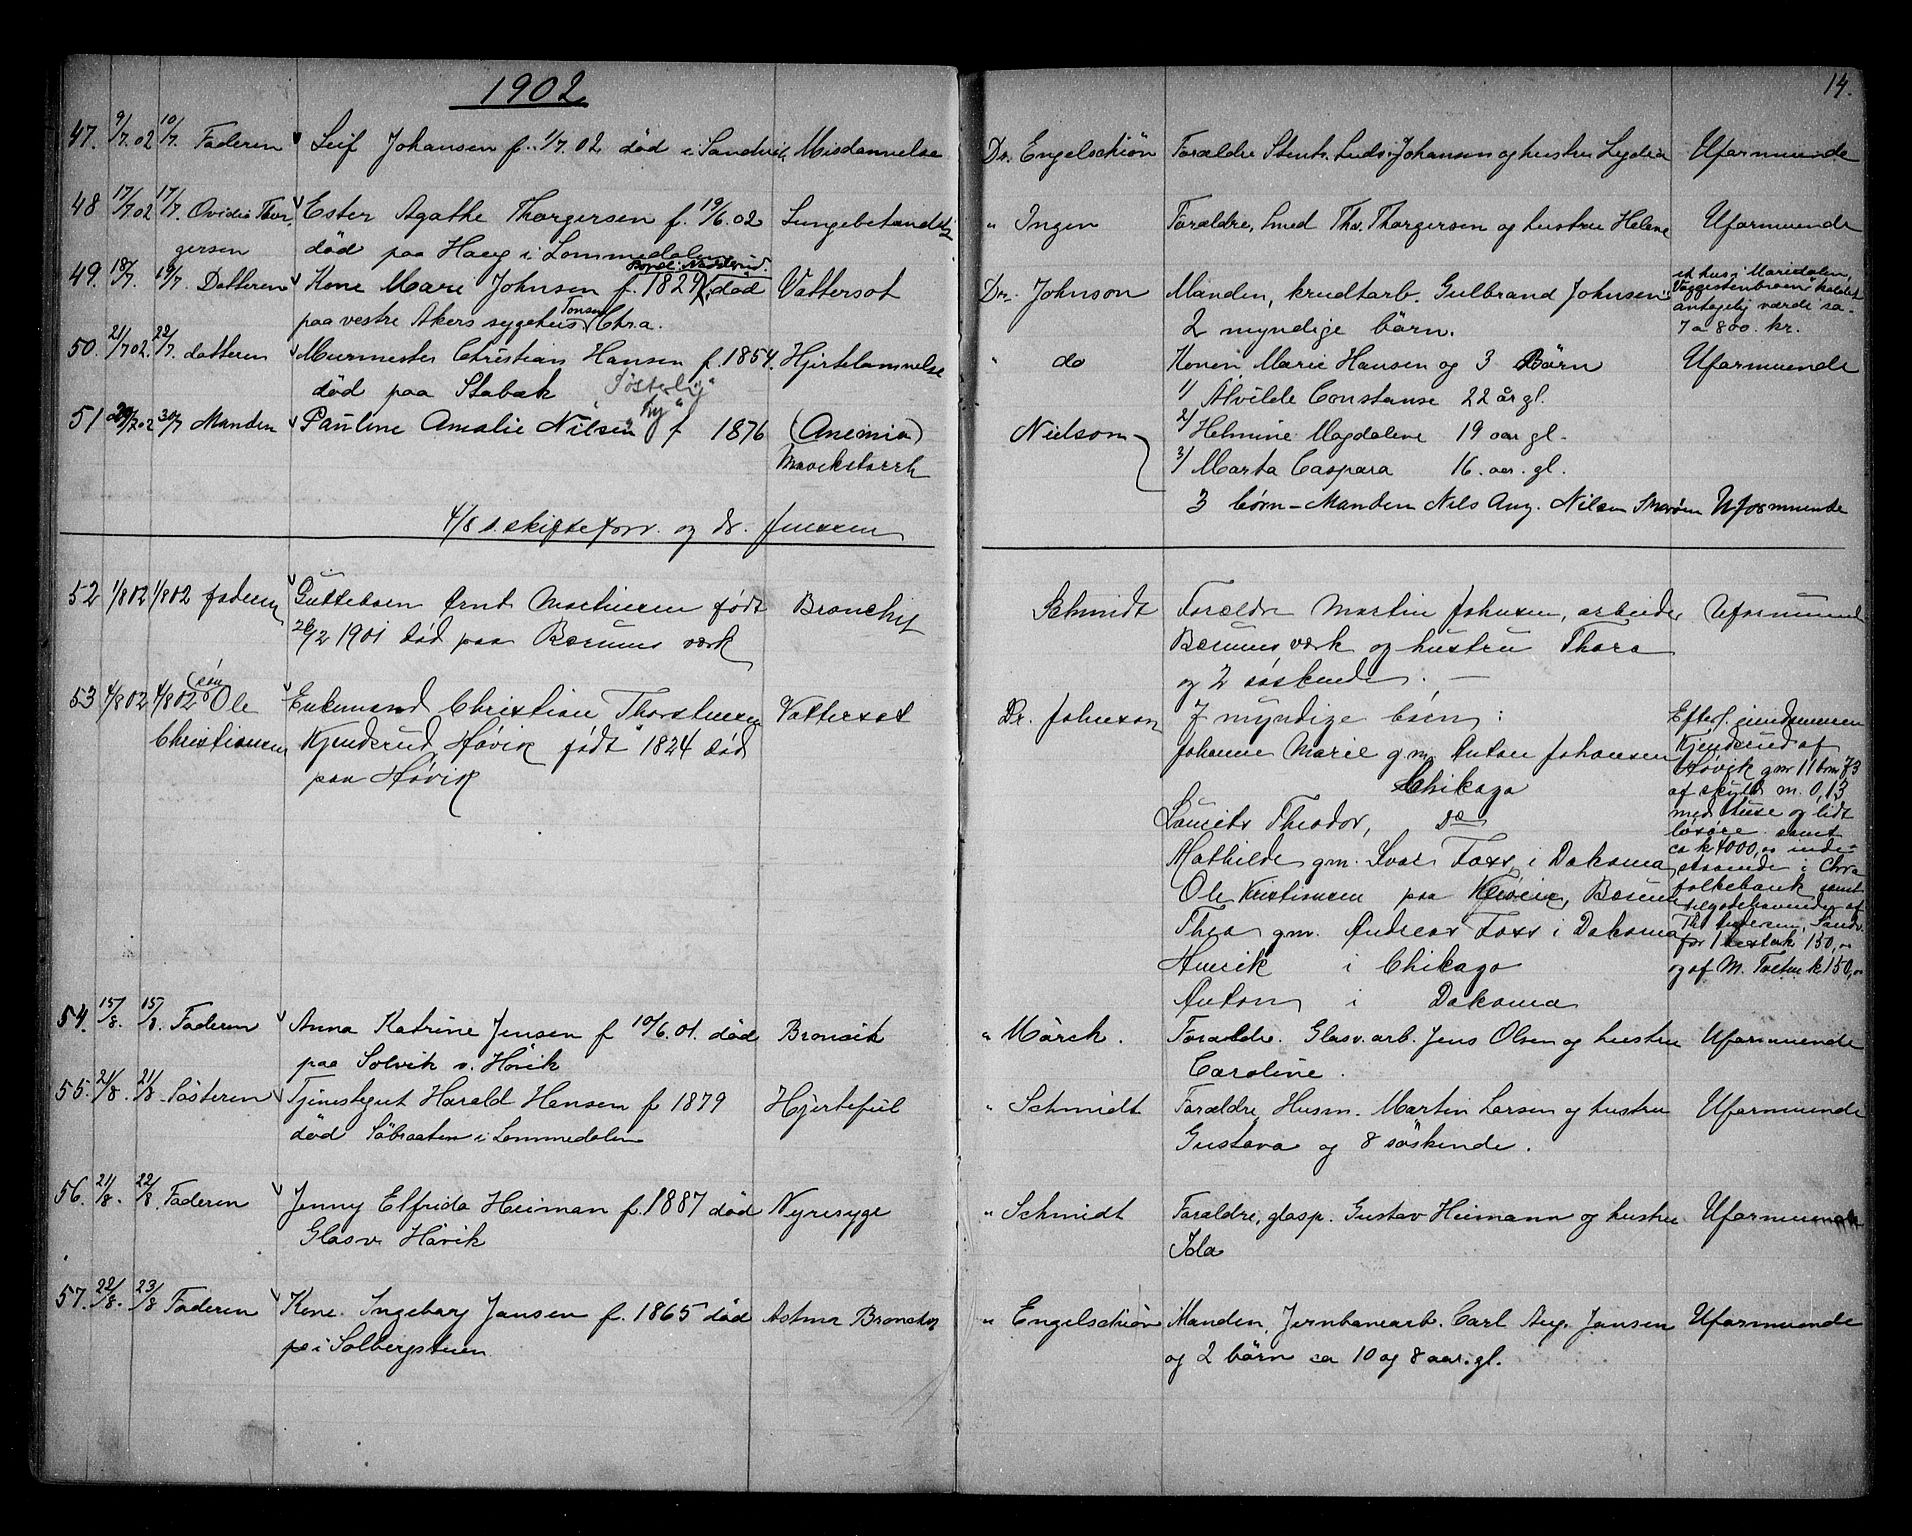 1902
14.
47. 9/7.02 10/7. Faderen Leif Johansen f. 1/7.02 død i Sandvik. Misdannelse Dr. Engelschiön Forældre Stent. Ludv. Johansen og hustru Lydia Uformuende
48 17/7.02 17/7. Ovidia Thor- Ester Agathe Thorgersen f. 19/6.02 Lungebetændelse " Ingen Forældre, Smed Thv. Thorgersen og hustru Helene Uformuende
gersen død paa Haug i Lommedalen
49. 18/7. 19/7. Datteren Kone Mari Johnsen f. 1829, død Vattersot Dr. Johnson Manden, krudtarb. Gulbrand Johnsen et hus i Maridalen,
paa vestre Akers sygehus Chra. 2 myndige börn. Vaggestenbraaten kaldet antagelig værdi ca. 7 a 800. kr.
50. 21/7.02. 22/7. datteren Murmester Christian Hansen f. 1854. Hjertelammelse " do Konen Marie Hansen og 3 Börn Uformuende
død paa Stabæk 1/ Alvilde Constanse 22 år gl.
"Fösterby"
51 29/7.02 30/7 Manden Pauline Amalie Nilsen f 1876 (Anemia) Nielson 2/ Helmine Magdalene 19 aar gl.
Mavekatarrh 3/ Marta Caspara 16. aar. gl.
3 börn - Manden Nils Aug. Nilsen Uformuende
4/8 s. skifteforv. og dr. Jenssen
52 1/8 02 1/8 02 faderen Gutteban Arnt Martinsen født Bronchit Schmidt Forældre Martin Johnsen, arbeider Uformuend
26/2 1901 død paa Bærums værk Bærums værk og hustru Thora
og 2 søskende. —
53 4/8 02 4/8 02 søn Ole Enkemand Christian Thorstensen Vattersot Dr. Johnson 7 myndige børn: Efterl. eiendommen
Christiansen Kjenderud, Høvik født 1824 død Johanne Marie g.m. Anton Johansen Kjenderud af
paa Høvik Chikago Høvik gnr 11 bnr 73
af skyld m. 0,13
Laurits Theodor, do med huse og lidt
løsøre samt
Mathilde gm. Ivar Foss i Dakoma ca k 4000,00 inde-
staaende i Chra
Ole Kristiansen paa Høvik, Bærum folkebank samt
tilgodehavende af
Thea gm. Andreas Foss i Dakoma Th. Andersen, Sandv. for 1 hest k 150,00
Henrik i Chikago og af M. Tveten k 150,00
Anton i Dakoma
54. 15/8. 15/8. Faderen Anna Katrine Jensen f 10/6.01. død Bronsit " Mörch. Forældre. Glasv. arb. Jens Olsen og hustru Uformuende
paa Solvik v. Hövik Caroline.
55. 21/8. 21/8 Sösteren Tjenestegut Harald Hansen f 1879 Hjertefeil " Schmidt Forældre, Husm. Martin Larsen og hustru Uformuende
död Söbraaten i Lommedalen Gustava og 8 söskende.
56. 21/8. 22/8. Faderen Jenny Elfrida Heiman f. 1887 død Nyresyge " Schmidt Forældre, glasp. Gustav Heimann og hustru Uformuende
Glasv. Hövik Ida
57. 22/8. 23/8 Faderen Kone Ingeborg Jansen f. 1865 död Astma Bronchit " Engelschiön Manden, Jernbanearb. Carl Aug. Jansen Uformuende
pe i Solbergstuen og 2 börn ca 10 og 8 aar. gl.